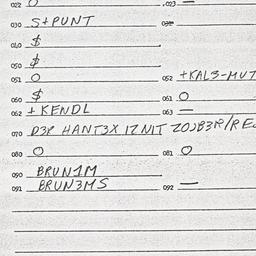 022 O 023 —
030 S+PUNT 031
040 $
050 $
051 O 052 +KAL3-MUT
060 $ 061 O
062 +KENDL 063 —
070 D3R HANT3X IZNIT ZOJB3R/RE
080 O 081 O
090 BRUN1M
091 BRUN3MS 092 —